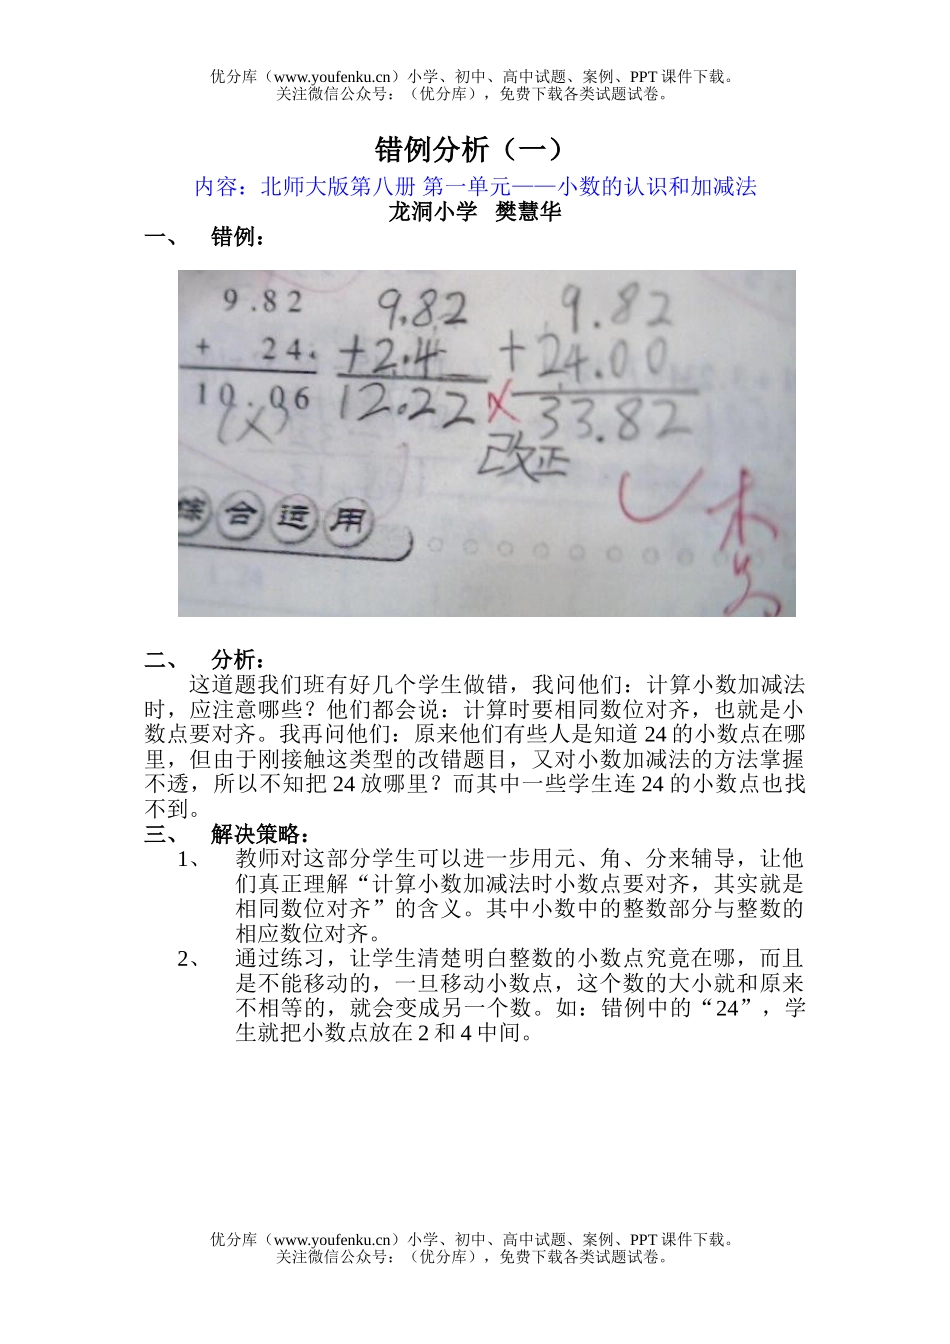 优分库（www.youfenku.cn）小学、初中、高中试题、案例、PPT 课件下载。
关注微信公众号：（优分库），免费下载各类试题试卷。
错例分析（一）
内容：北师大版第八册 第一单元——小数的认识和加减法
龙洞小学 樊慧华
一、 错例：
9.82 9.82 9.82
+ 24. +2.4 +24.00
10.06 12.22 × 33.82
(×)
改正
综合运用
二、 分析：
这道题我们班有好几个学生做错，我问他们：计算小数加减法
时，应注意哪些？他们都会说：计算时要相同数位对齐，也就是小
数点要对齐。我再问他们：原来他们有些人是知道 24 的小数点在哪
里，但由于刚接触这类型的改错题目，又对小数加减法的方法掌握
不透，所以不知把 24 放哪里？而其中一些学生连 24 的小数点也找
不到。
三、 解决策略：
1、 教师对这部分学生可以进一步用元、角、分来辅导，让他
们真正理解“计算小数加减法时小数点要对齐，其实就是
相同数位对齐”的含义。其中小数中的整数部分与整数的
相应数位对齐。
2、 通过练习，让学生清楚明白整数的小数点究竟在哪，而且
是不能移动的，一旦移动小数点，这个数的大小就和原来
不相等的，就会变成另一个数。如：错例中的“24”，学
生就把小数点放在 2 和 4 中间。
优分库（www.youfenku.cn）小学、初中、高中试题、案例、PPT 课件下载。
关注微信公众号：（优分库），免费下载各类试题试卷。